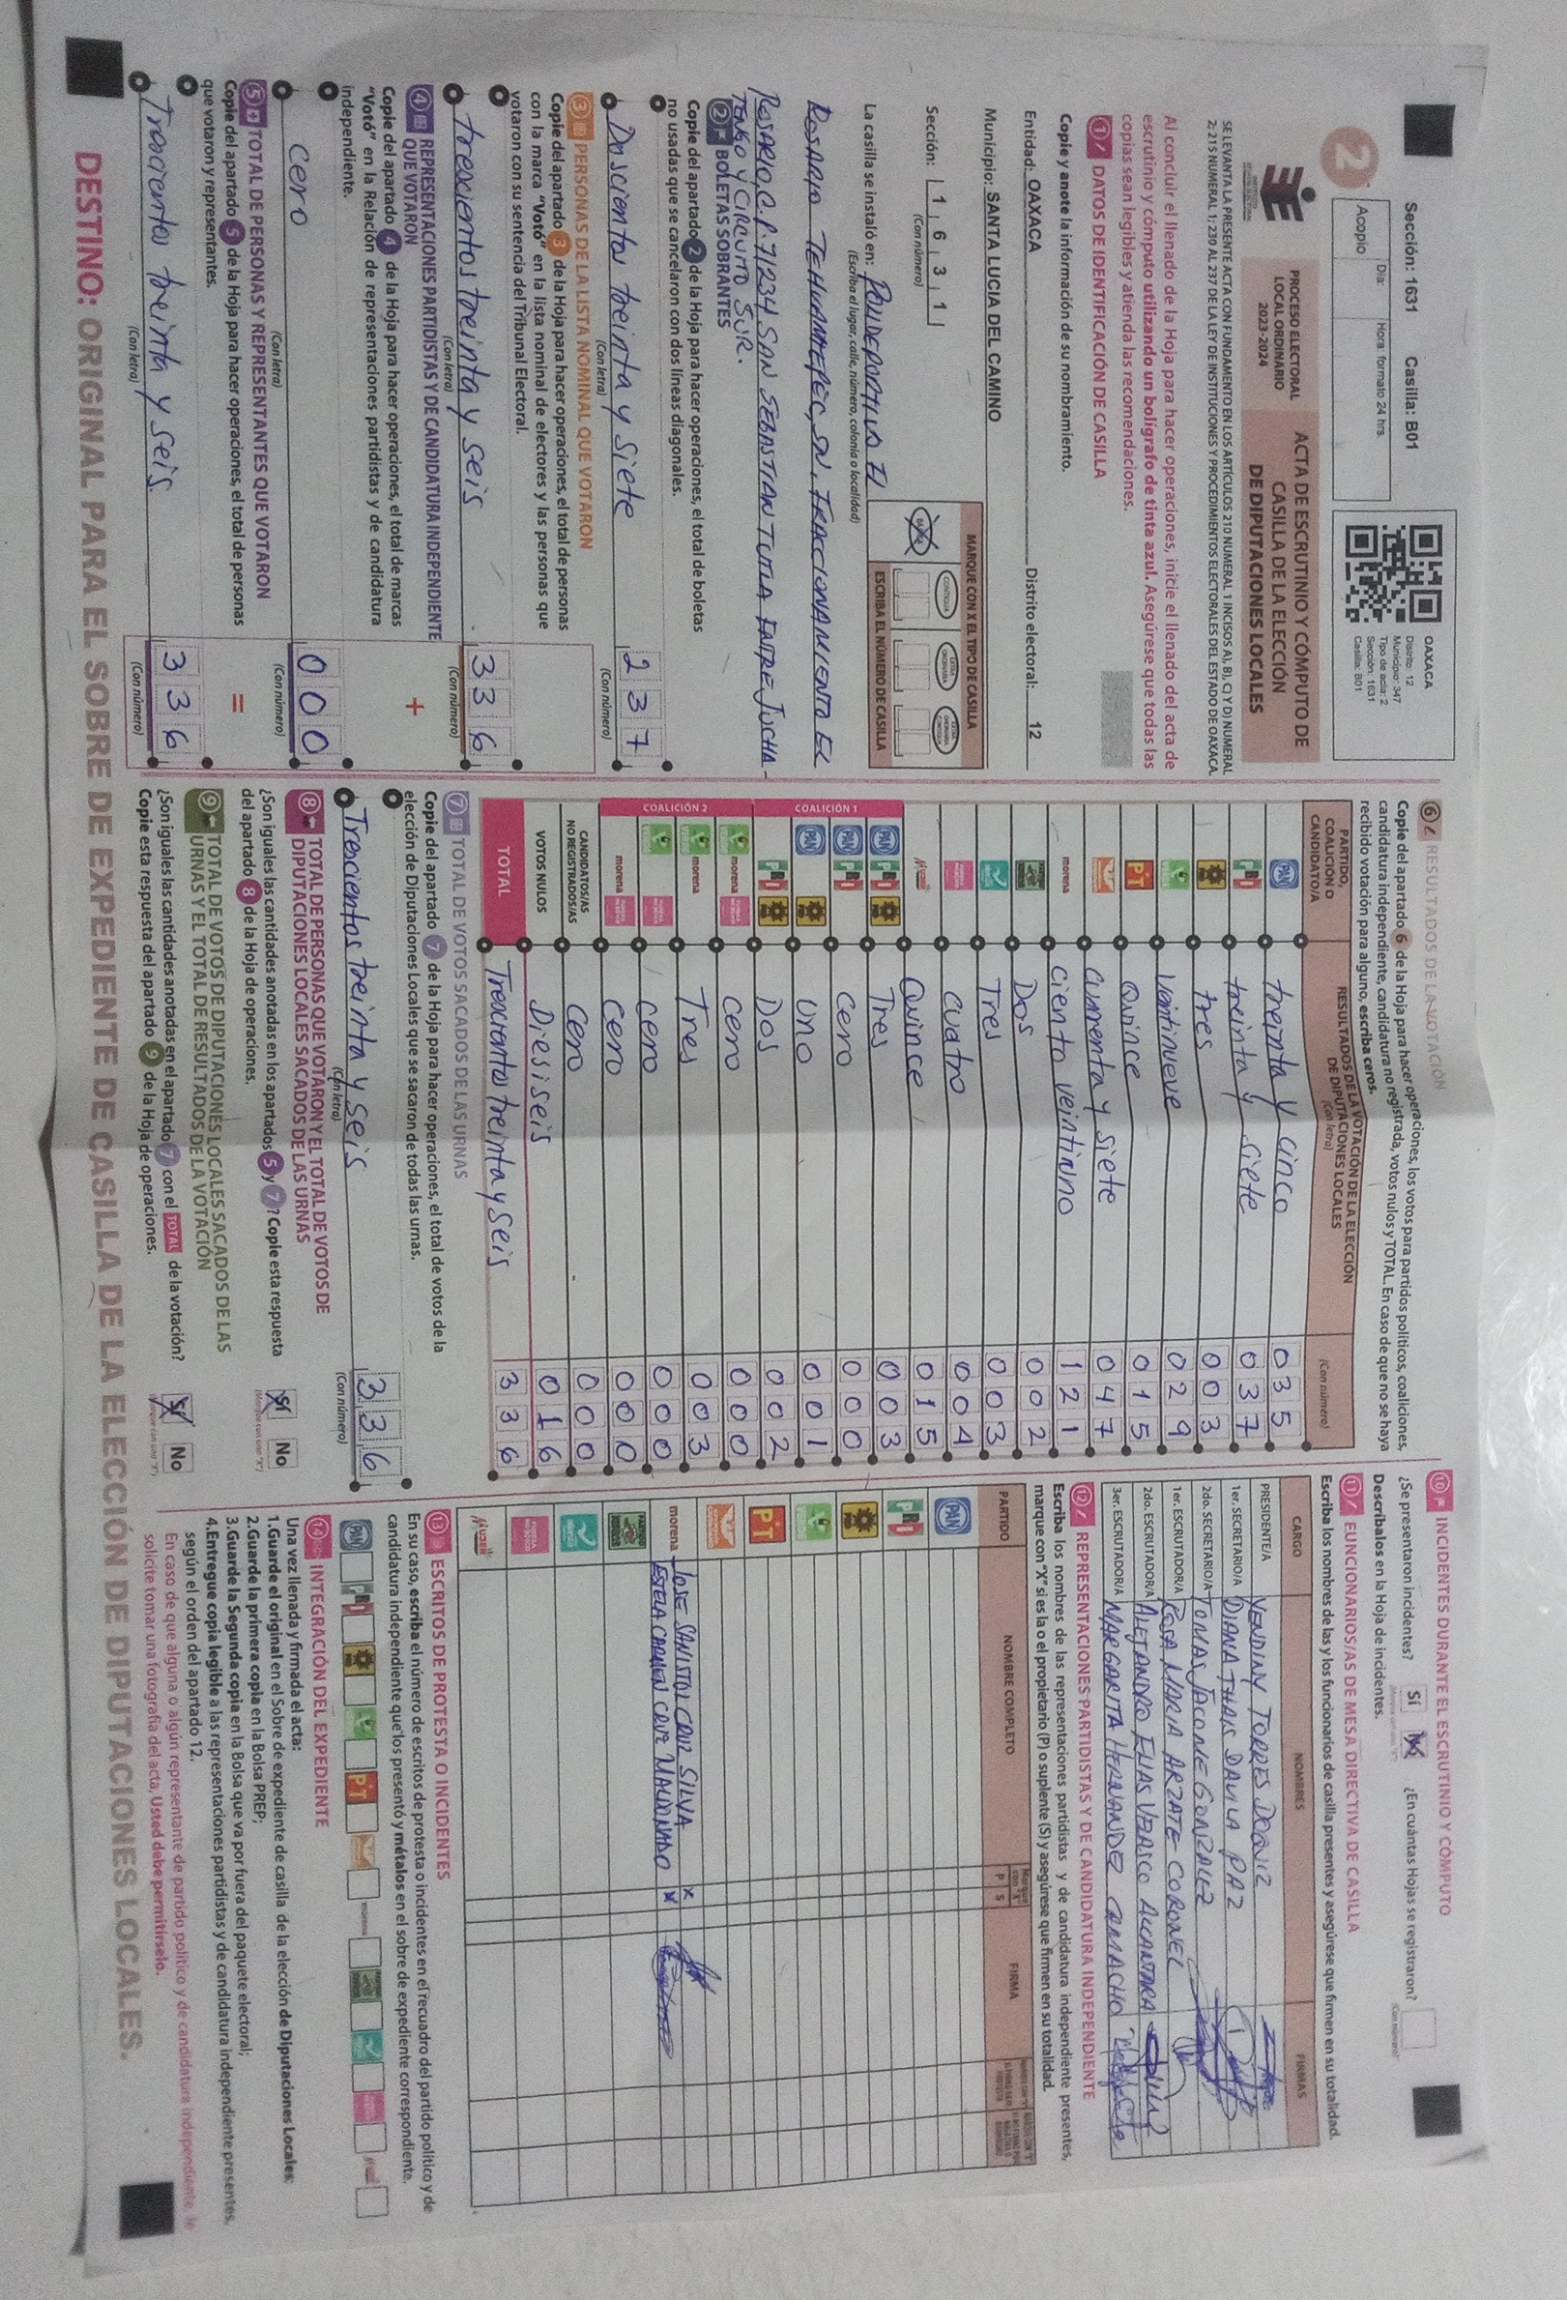 Sección: 1631 Casilla: B01
2
Día: Hora: formato 24 hrs.
Acopio
OAXACA
Distrito: 12
Municipio: 347
Tipo de acta: 2
Sección: 1631
Casilla: B01
PROCESO ELECTORAL
LOCAL ORDINARIO
2023-2024
ACTA DE ESCRUTINIO Y CÓMPUTO DE
CASILLA DE LA ELECCIÓN
DE DIPUTACIONES LOCALES
SE LEVANTA LA PRESENTE ACTA CON FUNDAMENTO EN LOS ARTÍCULOS 210 NUMERAL 1 INCISOS A), B), C) Y D) NUMERAL
2; 215 NUMERAL 1; 230 AL 237 DE LA LEY DE INSTITUCIONES Y PROCEDIMIENTOS ELECTORALES DEL ESTADO DE OAXACA.
Al concluir el llenado de la Hoja para hacer operaciones, inicie el llenado del acta de
escrutinio y cómputo utilizando un bolígrafo de tinta azul. Asegúrese que todas las
copias sean legibles y atienda las recomendaciones.
1 DATOS DE IDENTIFICACIÓN DE CASILLA
Copie y anote la información de su nombramiento.
Entidad: OAXACA Distrito electoral: 12
Municipio: SANTA LUCIA DEL CAMINO
Sección: 1 6 3 1
(Con número)
MARQUE CON X EL TIPO DE CASILLA
ESCRIBA EL NÚMERO DE CASILLA
La casilla se instaló en: POLIDEPORTIVO EL
(Escriba el lugar, calle, número, colonia o localidad)
ROSARIO TEHUANTEPEC, SN, FRACCIONAMIENTO EL
ROSARIO, C.P. 71234 SAN SEBASTIAN TUTLA ENTRE JUCHI-
TENGO Y CIRCUITO SUR.
2 BOLETAS SOBRANTES
Copie del apartado 2 de la Hoja para hacer operaciones, el total de boletas
no usadas que se cancelaron con dos líneas diagonales.
Doscientos treinta y siete 2 3 7
(Con letra) (Con número)
3 PERSONAS DE LA LISTA NOMINAL QUE VOTARON
Copie del apartado 3 de la Hoja para hacer operaciones, el total de personas
con la marca “Votó” en la lista nominal de electores y las personas que
votaron con su sentencia del Tribunal Electoral.
trescientos treinta y seis 3 3 6
(Con letra) (Con número)
4 REPRESENTACIONES PARTIDISTAS Y DE CANDIDATURA INDEPENDIENTE
QUE VOTARON
Copie del apartado 4 de la Hoja para hacer operaciones, el total de marcas
“Votó” en la Relación de representaciones partidistas y de candidatura
independiente.
+
cero 0 0 0
(Con letra) (Con número)
5 TOTAL DE PERSONAS Y REPRESENTANTES QUE VOTARON
Copie del apartado 5 de la Hoja para hacer operaciones, el total de personas
que votaron y representantes.
=
Trescientos treinta y seis 3 3 6
(Con letra) (Con número)
6 RESULTADOS DE LA VOTACIÓN
Copie del apartado 6 de la Hoja para hacer operaciones, los votos para partidos políticos, coaliciones,
candidatura independiente, candidatura no registrada, votos nulos y TOTAL. En caso de que no se haya
recibido votación para alguno, escriba ceros.
PARTIDO,
COALICIÓN O
CANDIDATO/A
RESULTADOS DE LA VOTACIÓN DE LA ELECCIÓN
DE DIPUTACIONES LOCALES
(Con letra) (Con número)
PAN treinta y cinco 0 3 5
PRI treinta y siete 0 3 7
PRD tres 0 0 3
VERDE veintinueve 0 2 9
PT Quince 0 1 5
cuarenta y siete 0 4 7
morena ciento veintiuno 1 2 1
Dos 0 0 2
Tres 0 0 3
cuatro 0 0 4
Mujer Quince 0 1 5
COALICIÓN 1
PAN PRI PRD Tres 0 0 3
PAN PRI cero 0 0 0
PAN PRD uno 0 0 1
PRI PRD Dos 0 0 2
COALICIÓN 2
VERDE morena cero 0 0 0
VERDE morena Tres 0 0 3
VERDE cero 0 0 0
morena cero 0 0 0
CANDIDATOS/AS
NO REGISTRADOS/AS cero 0 0 0
VOTOS NULOS Diesiseis 0 1 6
TOTAL Trescientos treinta y seis 3 3 6
7 TOTAL DE VOTOS SACADOS DE LAS URNAS
Copie del apartado 7 de la Hoja para hacer operaciones, el total de votos de la
elección de Diputaciones Locales que se sacaron de todas las urnas.
Trescientos treinta y seis 3 3 6
(Con letra) (Con número)
8 TOTAL DE PERSONAS QUE VOTARON Y EL TOTAL DE VOTOS DE
DIPUTACIONES LOCALES SACADOS DE LAS URNAS
¿Son iguales las cantidades anotadas en los apartados 5 y 7? Copie esta respuesta
del apartado 8 de la Hoja de operaciones.
Sí No
9 TOTAL DE VOTOS DE DIPUTACIONES LOCALES SACADOS DE LAS
URNAS Y EL TOTAL DE RESULTADOS DE LA VOTACIÓN
¿Son iguales las cantidades anotadas en el apartado 7 con el TOTAL de la votación?
Copie esta respuesta del apartado 9 de la Hoja de operaciones.
Sí No
10 INCIDENTES DURANTE EL ESCRUTINIO Y CÓMPUTO
¿Se presentaron incidentes? Sí No ¿En cuántas Hojas se registraron?
Descríbalos en la Hoja de incidentes.
11 FUNCIONARIOS/AS DE MESA DIRECTIVA DE CASILLA
Escriba los nombres de las y los funcionarios de casilla presentes y asegúrese que firmen en su totalidad.
CARGO NOMBRES FIRMAS
PRESIDENTE/A YENDINY TORRES DORNIZ
1er. SECRETARIO/A DIANA THAIS DAVILA PAZ
2do. SECRETARIO/A TOMAS JACOME GONZALEZ
1er. ESCRUTADOR/A ROSA MARIA ARZATE CORONEL
2do. ESCRUTADOR/A ALEJANDRO ELIAS VERASCO ALCANTARA
3er. ESCRUTADOR/A MARGARITA HERNANDEZ CAMACHO
12 REPRESENTACIONES PARTIDISTAS Y DE CANDIDATURA INDEPENDIENTE
Escriba los nombres de las representaciones partidistas y de candidatura independiente presentes,
marque con “X” si es la o el propietario (P) o suplente (S) y asegúrese que firmen en su totalidad.
PARTIDO NOMBRE COMPLETO P S FIRMA
PAN
PRI
PRD
VERDE
PT
morena JOSE SANTOS CRUZ SILVA X
ESTELA CARMEN CRUZ MALDONADO X
Mujer
13 ESCRITOS DE PROTESTA O INCIDENTES
En su caso, escriba el número de escritos de protesta o incidentes en el recuadro del partido político y de
candidatura independiente que los presentó y métalos en el sobre de expediente correspondiente.
14 INTEGRACIÓN DEL EXPEDIENTE
Una vez llenada y firmada el acta:
1.Guarde el original en el Sobre de expediente de casilla de la elección de Diputaciones Locales;
2.Guarde la primera copia en la Bolsa PREP;
3.Guarde la Segunda copia en la Bolsa que va por fuera del paquete electoral;
4.Entregue copia legible a las representaciones partidistas y de candidatura independiente presentes,
según el orden del apartado 12.
En caso de que alguna o algún representante de partido político y de candidatura independiente, le
solicite tomar una fotografía del acta, Usted debe permitírselo.
DESTINO: ORIGINAL PARA EL SOBRE DE EXPEDIENTE DE CASILLA DE LA ELECCIÓN DE DIPUTACIONES LOCALES.